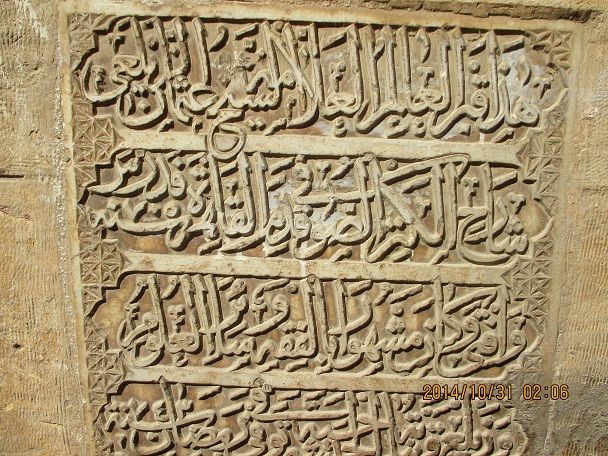 هذا قبر العالم العلامة الشيخ عثمان الزيلعي
شارح الكنز الصوفي ورد القاهرة ودرس
وافتى وكان مشهورا بالفقه وسائر العلوم
توفي رمضان سنة
2014/10/31 02:06